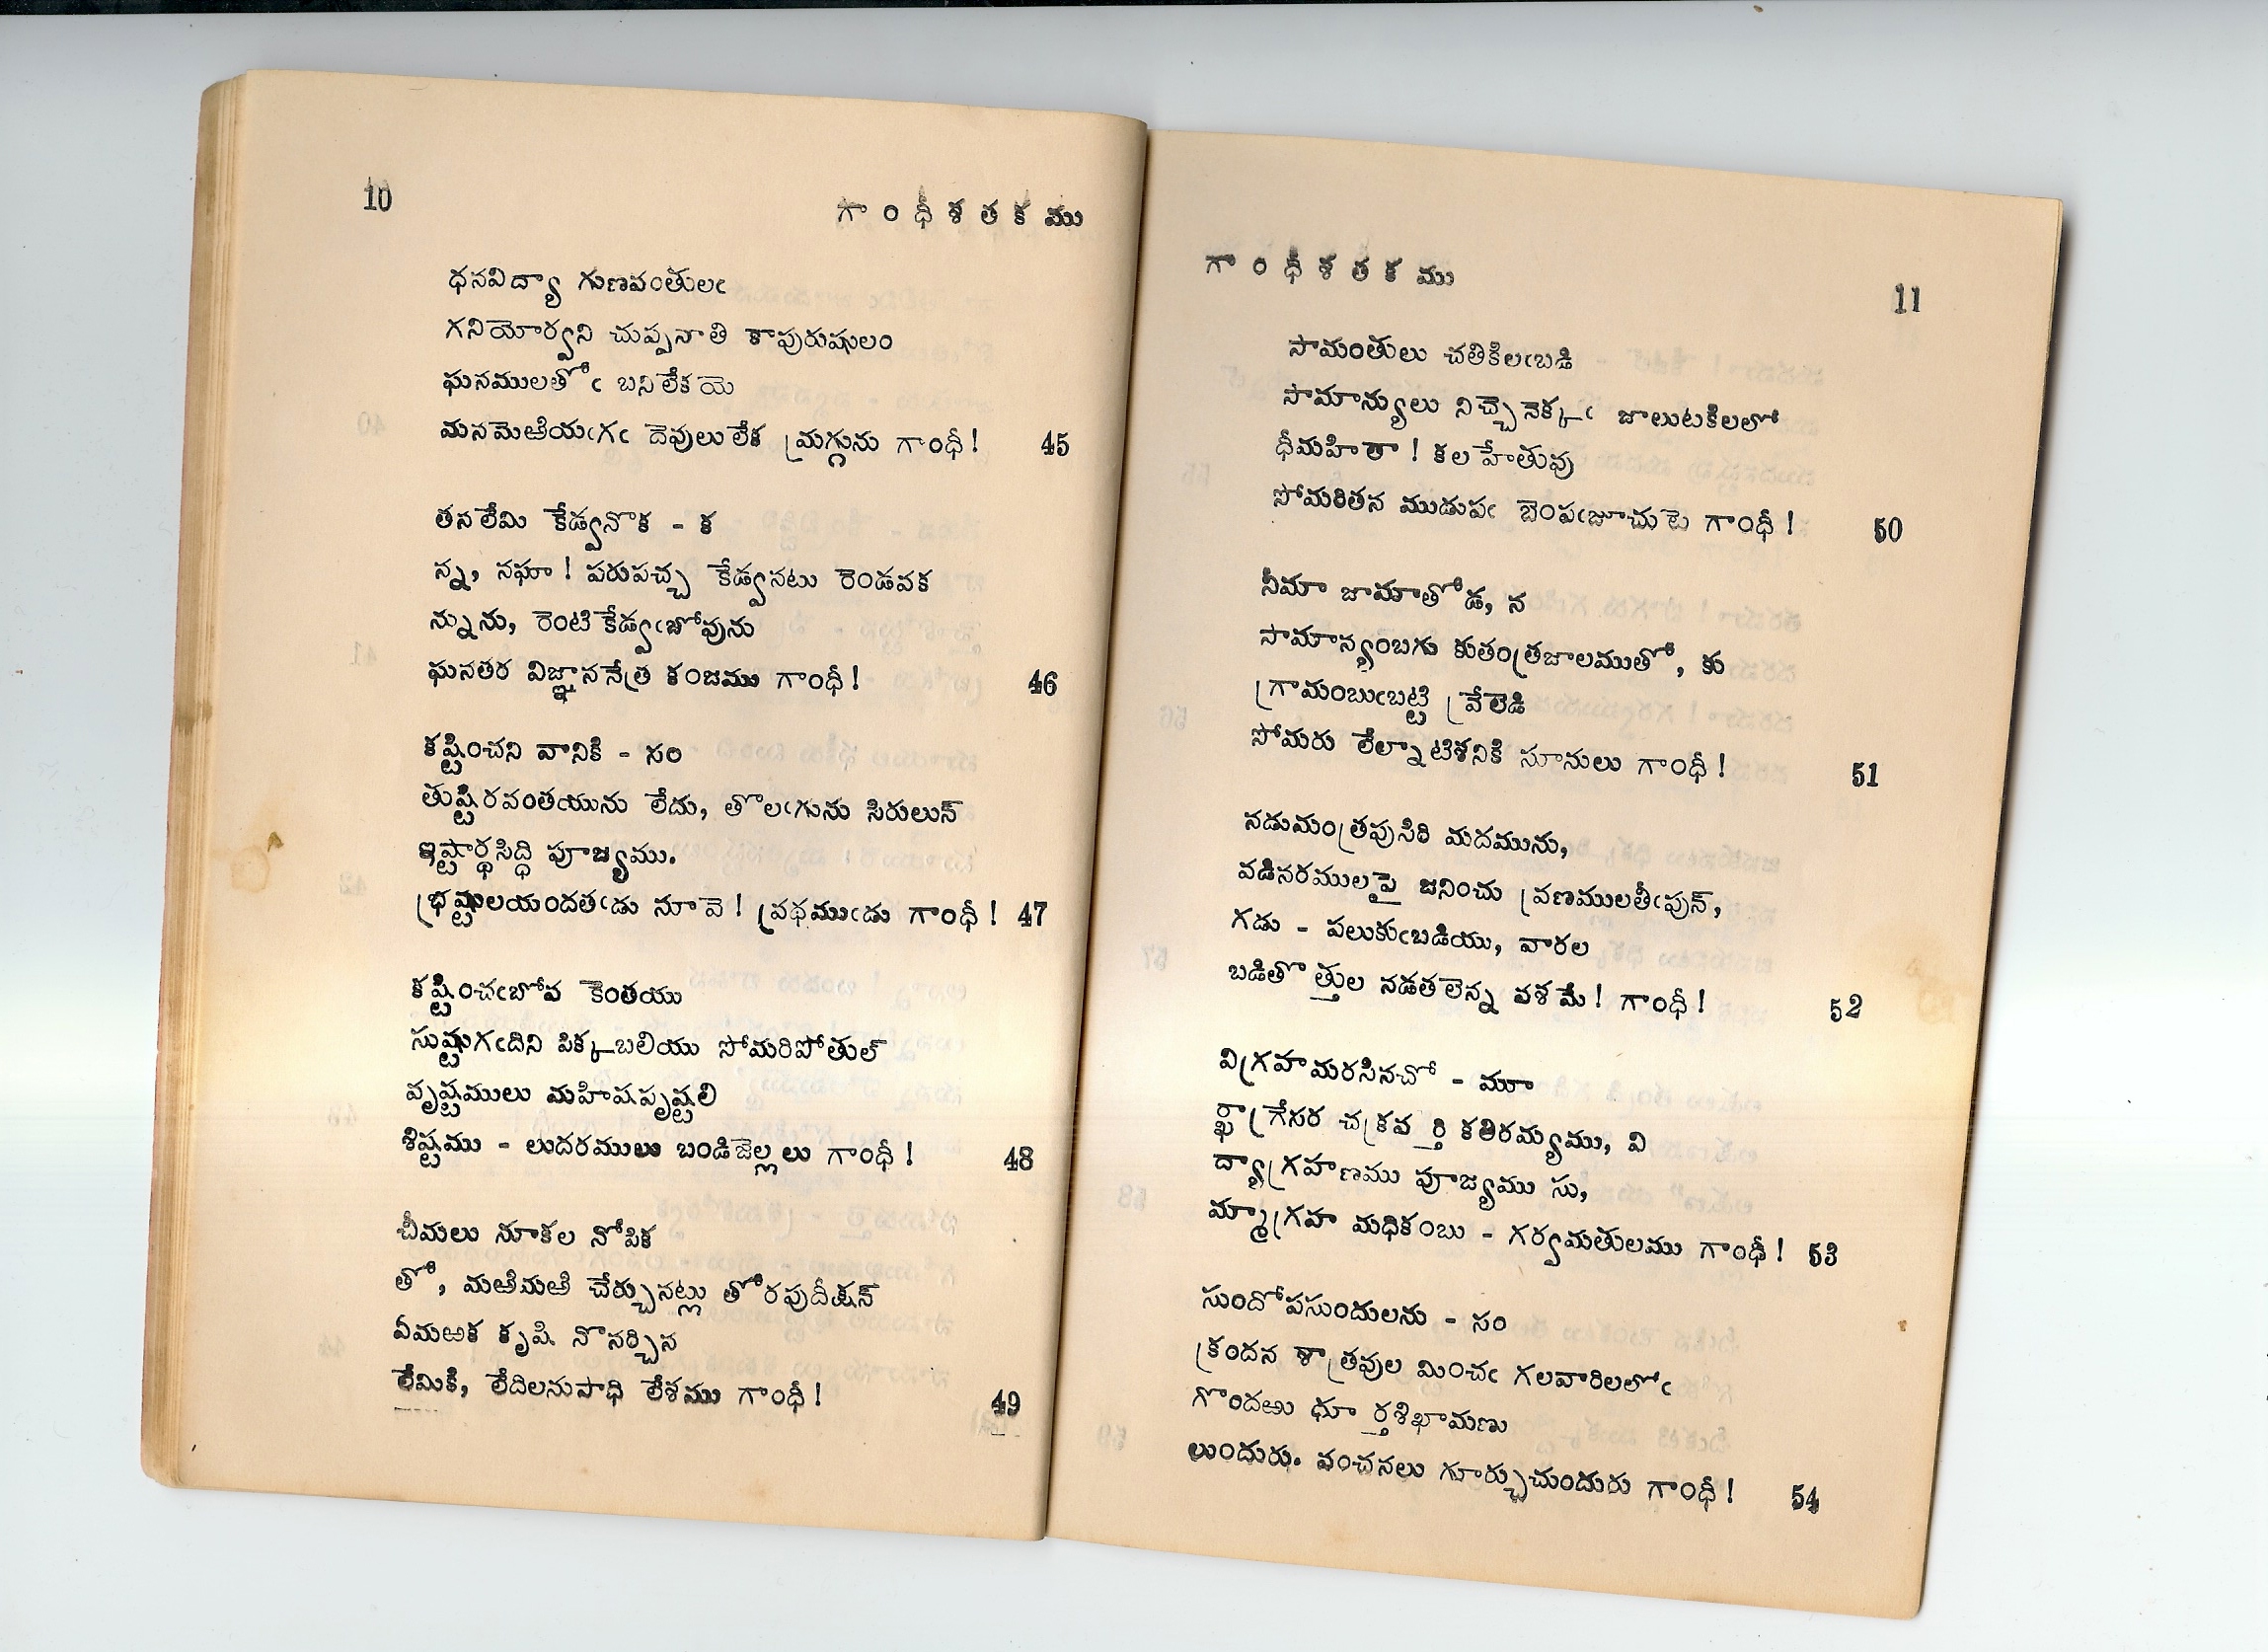 10
గాంధీశతకము
ధనవిద్యా గుణవంతులఁ
గనియోర్వని చుప్పనాతి కాపురుషులం
ఘనములతోఁ బనిలేకయె
మనమెఱియఁగఁ దెవులులేక మ్రగ్గును గాంధీ! 45
తనలేమి కేడ్వనొక - క
న్న, నఘా! పరుపచ్చ కేడ్వనటు రెండవక
న్నును, రెంటికేడ్వఁబోవును
ఘనతర విజ్ఞాననేత్ర కంజము గాంధీ! 46
కష్టించని వానికి - సం
తుష్టిరవంతయును లేదు, తొలఁగును సిరులున్
ఇష్టార్థసిద్ధి పూజ్యము.
భ్రష్టులయందతఁడు నూవె! ప్రథముఁడు గాంధీ! 47
కష్టించఁబోవ కెంతయు
సుష్టుగఁదిని పిక్కబలియు సోమరిపోతుల్
పృష్టములు మహిషపృష్టలి
శిష్టము - లుదరములు బండిజెల్లలు గాంధీ! 48
చీమలు నూకల నోపిక
తో, మఱిమఱి చేర్చునట్లు తోరపుదీక్షన్
ఏమఱక కృషి నొనర్చిన
లేమికి, లేదిలనుపాధి లేశము గాంధీ! 49
గాంధీశతకము
11
సామంతులు చతికిలఁబడి
సామాన్యులు నిచ్చెనెక్కఁ జాలుటకిలలో
ధీమహితా! కల హేతువు
సోమరితన ముడుపఁ బెంపఁజూచుటె గాంధీ! 50
నీమా జామాతోడ, న
సామాన్యంబగు కుతంత్రజాలముతో, కు
గ్రామంబుఁబట్టి వ్రేలెడి
సోమరు లేల్నాటిశనికి సూనులు గాంధీ! 51
నడుమంత్రపుసిరి మదమును,
వడినరములపై జనించు వ్రణములతీఁపున్,
గడు - పలుకుఁబడియు, వారల
బడితొత్తుల నడతలెన్న వశమే! గాంధీ! 52
విగ్రహమరసినచో - మూ
ర్ఖాగ్రేసర చక్రవర్తి కతిరమ్యము, వి
ద్యాగ్రహణము పూజ్యము సు,
మ్మాగ్రహ మధికంబు - గర్వమతులము గాంధీ! 53
సుందోపసుందులను - సం
క్రందన శాత్రవుల మించఁ గలవారిలలోఁ
గొందఱు ధూర్తశిఖామణు
లుందురు. వంచనలు గూర్చుచుందురు గాంధీ! 54